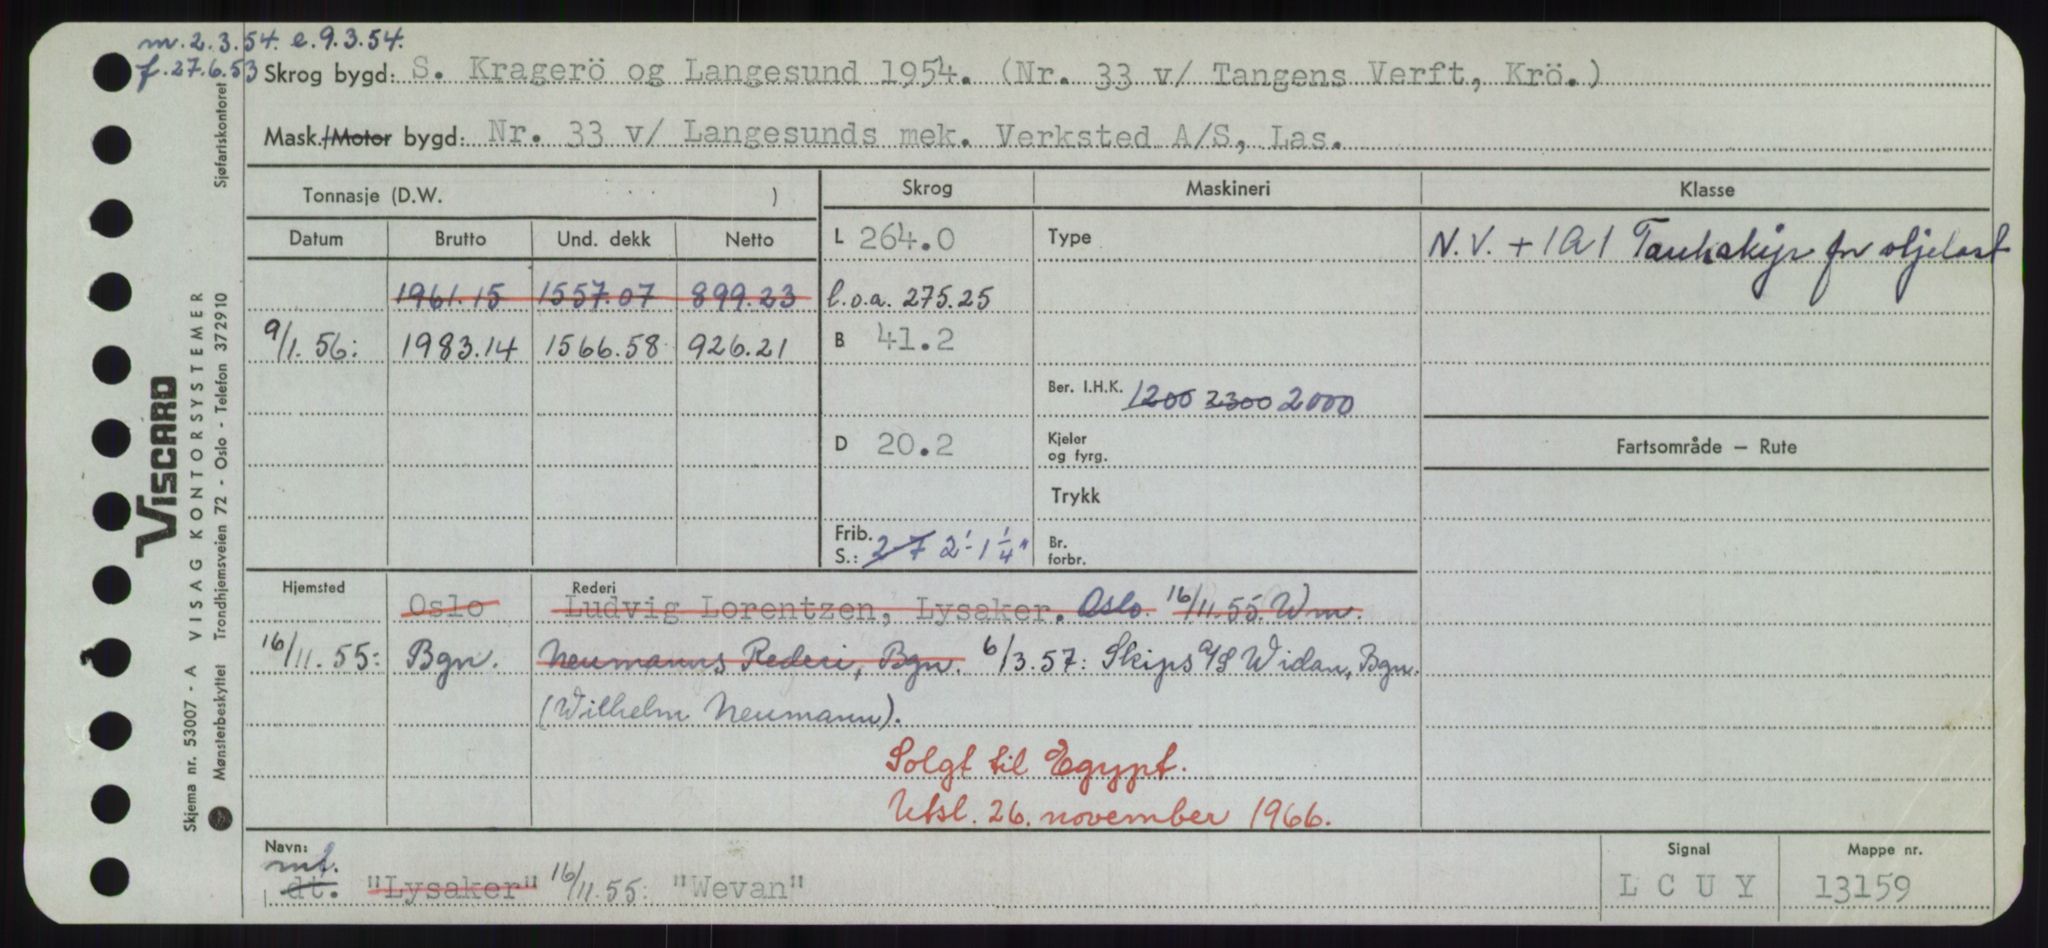 m. 2.3.54. e. 9.3.54.
f. 27.6.53 Skrog bygd: S. Kragerö og Langesund 1954. (Nr. 33 v/ Tangens Verft, Krö.)
Mask./Motor bygd: Nr. 33 v/ Langesunds mek. Verksted A/S, Las.
Tonnasje (D.W. ) Skrog Maskineri Klasse
Datum Brutto Und. dekk Netto L 264.0 Type N.V. + 1A1 Tankskip for oljelast
1961.15 1557.07 899.23 l.o.a. 275.25
9/1.56: 1983.14 1566.58 926.21 B 41.2
Ber. I.H.K. 1200 2300 2000
D 20.2 Kjeler
og fyrg.
Fartsområde — Rute
Trykk
Frib.
S.: 2-7 2'-1 1/4" Br.
forbr.
Hjemsted Rederi
Oslo Ludvig Lorentzen, Lysaker. Oslo. 16/11.55. Wm.
16/11.55: Bgn. Neumanns Rederi, Bgn. 6/3.57: Skips A/S Widan, Bgn.
(Wilhelm Neumann).
Solgt til Egypt.
Utsl. 26. november 1966.
Navn: Signal Mappe nr.
mt.
dt. "Lysaker" 16/11.55: "Wevan" LCUY 13159
VISCARD
Skjema nr. 53007 - A VISAG KONTORSYSTEMER
Mønsterbeskyttet Trondhjemsveien 72 - Oslo - Telefon 372910 Sjøfartskontoret